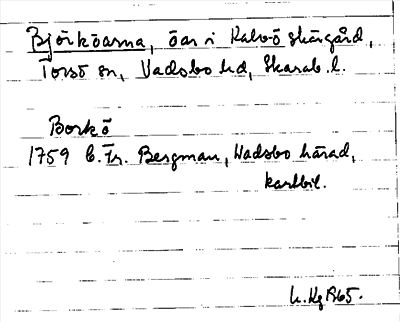 Björköarna, öar i Kalvö skärgård,
Torsö sn, Vadsbo hd, Skarab. l.
Borkö
1759 C. Fr. Bergman, Wadsbo härad,
kartbil.